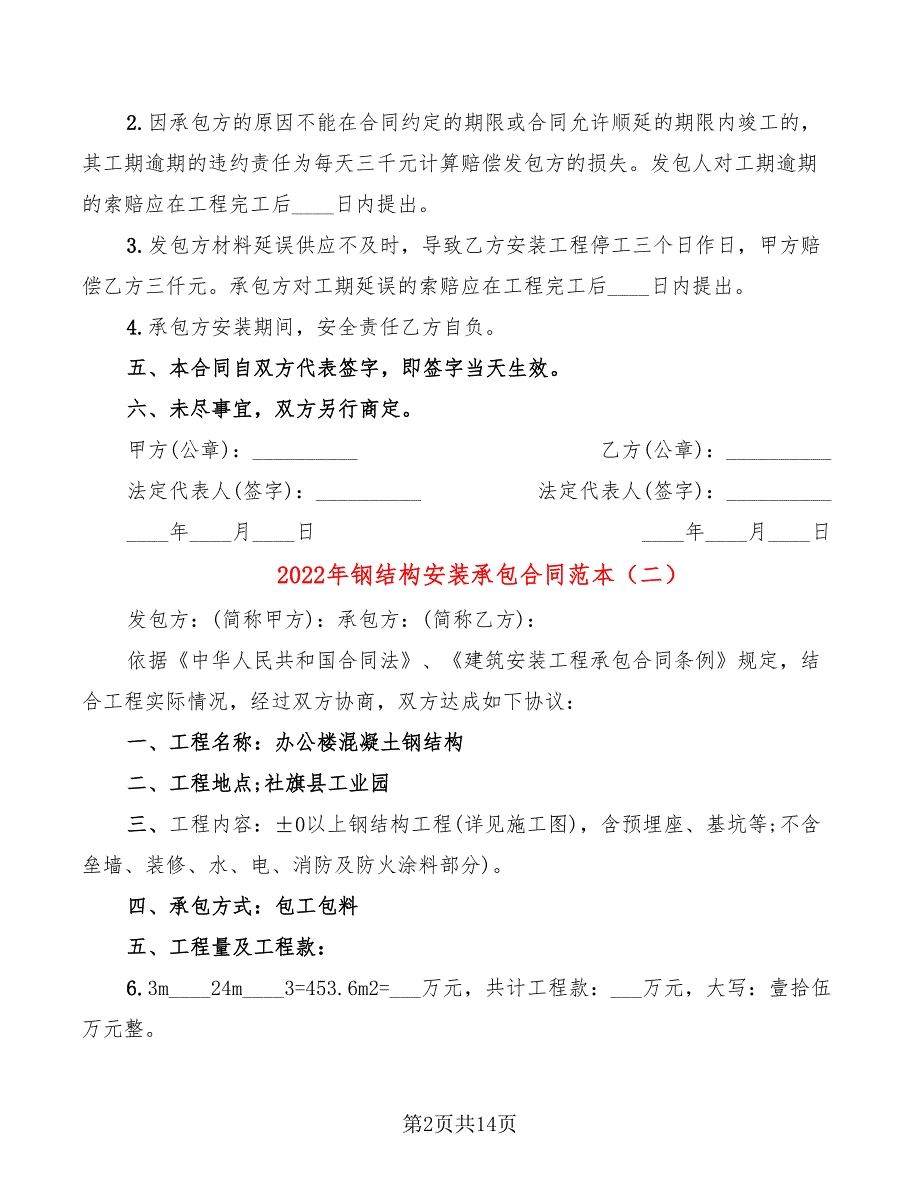 2.因承包方的原因不能在合同约定的期限或合同允许顺延的期限内竣工的，
其工期逾期的违约责任为每天三千元计算赔偿发包方的损失。发包人对工期逾期
的索赔应在工程完工后____日内提出。
3.发包方材料延误供应不及时，导致乙方安装工程停工三个日作日，甲方赔
偿乙方三仟元。承包方对工期延误的索赔应在工程完工后____日内提出。
4.承包方安装期间，安全责任乙方自负。
五、本合同自双方代表签字，即签字当天生效。
六、未尽事宜，双方另行商定。
甲方(公章)：__________ 乙方(公章)：__________
法定代表人(签字)：__________ 法定代表人(签字)：__________
____年____月____日 ____年____月____日
2022年钢结构安装承包合同范本（二）
发包方：(简称甲方)：承包方：(简称乙方)：
依据《中华人民共和国合同法》、《建筑安装工程承包合同条例》规定，结
合工程实际情况，经过双方协商，双方达成如下协议：
一、工程名称：办公楼混凝土钢结构
二、工程地点;社旗县工业园
三、工程内容：±0以上钢结构工程(详见施工图)，含预埋座、基坑等;不含
垒墙、装修、水、电、消防及防火涂料部分)。
四、承包方式：包工包料
五、工程量及工程款：
6.3m____24m____3=453.6m2=___万元，共计工程款：___万元，大写：壹拾伍
万元整。
第2页共14页